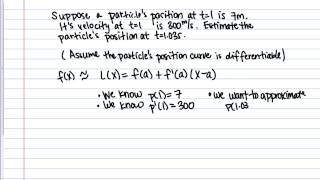 Suppose a particle's position at t=1 is 7m.
It's velocity at t=1 is 300m/s. Estimate the
particle's position at t=1.03s.
(Assume the particle's position curve is differentiable)
f(x) ≈ L(x) = f(a) + f'(a)(x-a)
• We know p(1)=7 • we want to approximate
• We know p'(1)=300 p(1.03